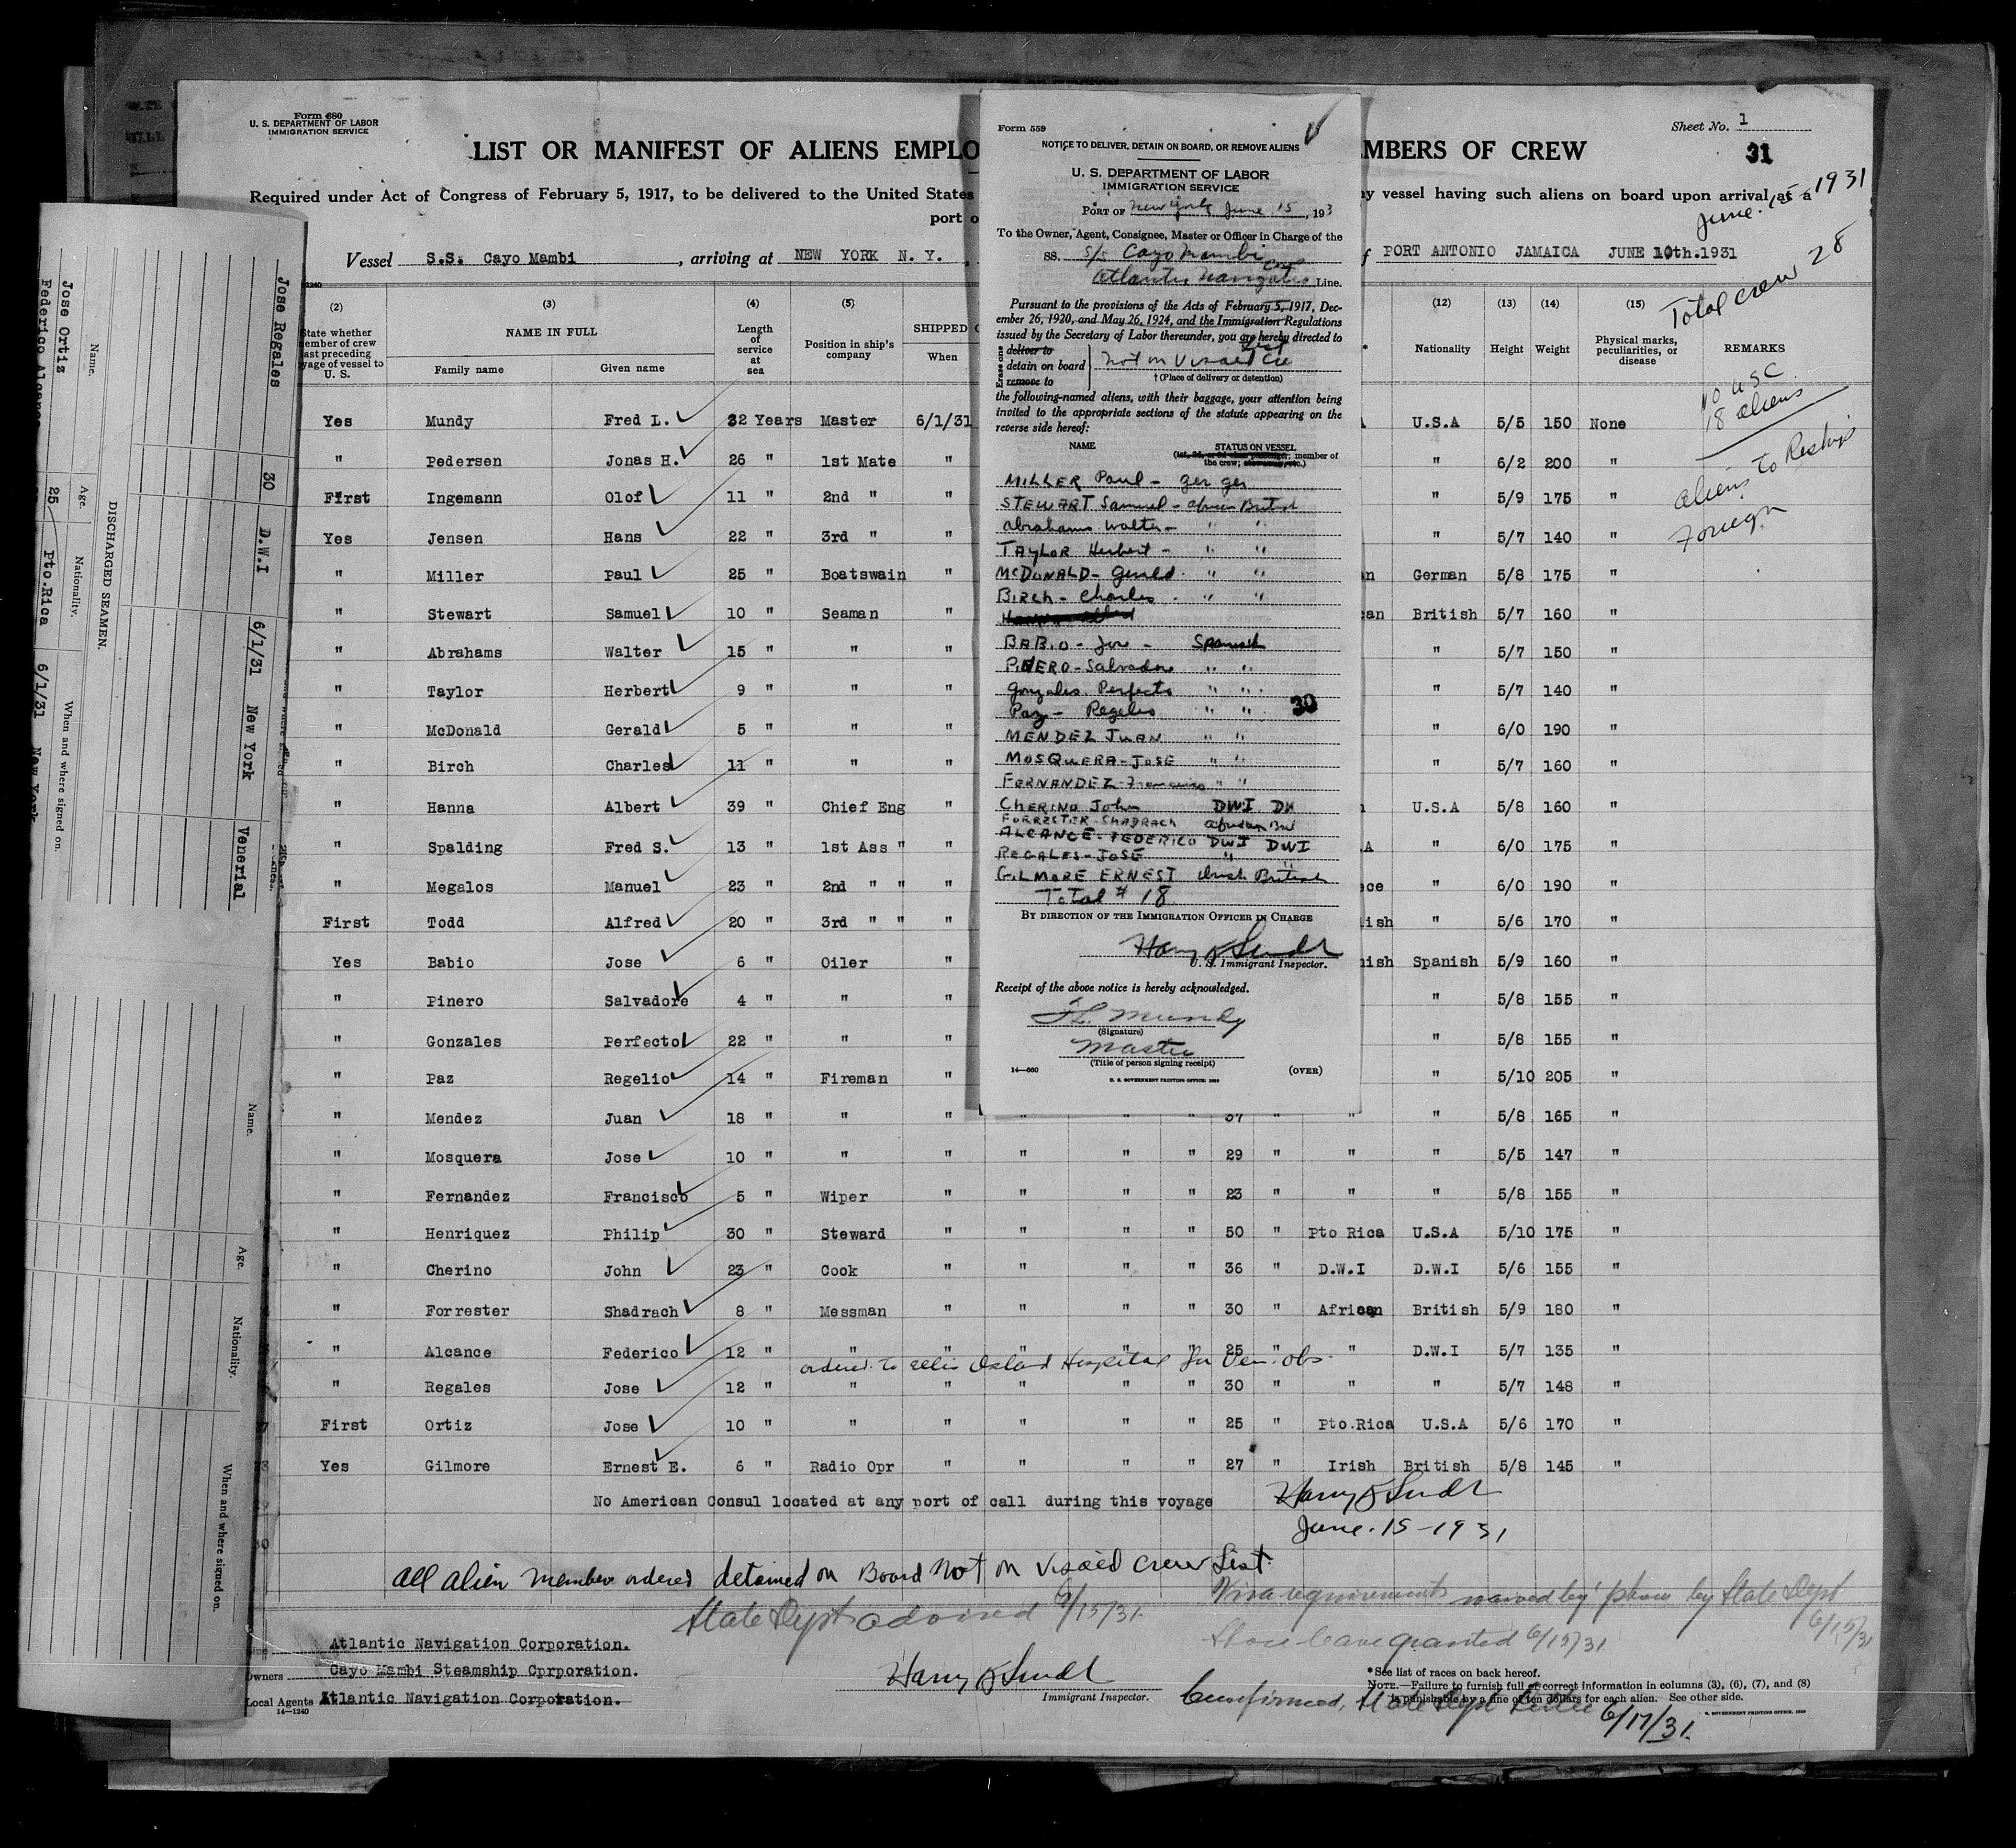 Form 680
U. S. DEPARTMENT OF LABOR
IMMIGRATION SERVICE
Sheet No. 1
31
LIST OR MANIFEST OF ALIENS EMPLO
MBERS OF CREW
Required under Act of Congress of February 5, 1917, to be delivered to the United States
ny vessel having such aliens on board upon arrival at a
port o
June 15-1931
Vessel S.S. Cayo Mambi, arriving at NEW YORK N. Y.,
f PORT ANTONIO JAMAICA JUNE 10th.1931
Total crew 28
10 USC
18 aliens
aliens to Reship
Foreign
(2) (3) (4) (5) (12) (13) (14) (15)
State whether member of crew last preceding voyage of vessel to U. S.
NAME IN FULL
Family name Given name
Length of service at sea
Position in ship's company
SHIPPED O
When
Nationality Height Weight
Physical marks, peculiarities, or disease
REMARKS
Yes Mundy Fred L. 32 Years Master 6/1/31 U.S.A 5/5 150 None
" Pedersen Jonas H. 26 " 1st Mate " " 6/2 200 "
First Ingemann Olof 11 " 2nd " " " 5/9 175 "
Yes Jensen Hans 22 " 3rd " " " 5/7 140 "
" Miller Paul 25 " Boatswain " n German 5/8 175 "
" Stewart Samuel 10 " Seaman " can British 5/7 160 "
" Abrahams Walter 15 " " " " 5/7 150 "
" Taylor Herbert 9 " " " " 5/7 140 "
" McDonald Gerald 5 " " " " 6/0 190 "
" Birch Charles 11 " " " " 5/7 160 "
" Hanna Albert 39 " Chief Eng " U.S.A 5/8 160 "
" Spalding Fred S. 13 " 1st Ass " " A " 6/0 175 "
" Megalos Manuel 23 " 2nd " " " ece " 6/0 190 "
First Todd Alfred 20 " 3rd " " " lish " 5/6 170 "
Yes Babio Jose 6 " Oiler " nish Spanish 5/9 160 "
" Pinero Salvadore 4 " " " " 5/8 155 "
" Gonzales Perfecto 22 " " " " 5/8 155 "
" Paz Regelio 14 " Fireman " " 5/10 205 "
" Mendez Juan 18 " " " " " " 37 " " " 5/8 165 "
" Mosquera Jose 10 " " " " " " 29 " " " 5/5 147 "
" Fernandez Francisco 5 " Wiper " " " " 23 " " " 5/8 155 "
" Henriquez Philip 30 " Steward " " " " 50 " Pto Rica U.S.A 5/10 175 "
" Cherino John 23 " Cook " " " " 36 " D.W.I D.W.I 5/6 155 "
" Forrester Shadrach 8 " Messman " " " " 30 " African British 5/9 180 "
" Alcance Federico 12 " " " " " " 25 " " D.W.I 5/7 135 "
ordered to Ellis Island Hospital for Ven. Obs.
" Regales Jose 12 " " " " " " 30 " " " 5/7 148 "
First Ortiz Jose 10 " " " " " " 25 " Pto.Rica U.S.A 5/6 170 "
Yes Gilmore Ernest E. 6 " Radio Opr " " " " 27 " Irish British 5/8 145 "
No American Consul located at any port of call during this voyage
June. 15-1931
All alien member ordered detained on Board not on visaed crew List
State Dept advised 6/15/31.
Visa requirements waived by 'phone by State Dept 6/15/31
Shore leave granted 6/15/31
Confirmed, State Dept Letter 6/17/31.
Line Atlantic Navigation Corporation.
Owners Cayo Mambi Steamship Cprporation.
Local Agents Atlantic Navigation Corporation.
14—1240
Immigrant Inspector.
*See list of races on back hereof.
NOTE.—Failure to furnish full or correct information in columns (3), (6), (7), and (8)
is punishable by a fine of ten dollars for each alien. See other side.
U. S. GOVERNMENT PRINTING OFFICE: 1930
Form 559
NOTICE TO DELIVER, DETAIN ON BOARD, OR REMOVE ALIENS
U. S. DEPARTMENT OF LABOR
IMMIGRATION SERVICE
PORT OF New York June 15, 193
To the Owner, Agent, Consignee, Master or Officer in Charge of the
SS. S/S Cayo Mambi
Atlantic Navigation Corp Line.
Pursuant to the provisions of the Acts of February 5, 1917, Dec-
ember 26, 1920, and May 26, 1924, and the Immigration Regulations
issued by the Secretary of Labor thereunder, you are hereby directed to
Erase one
deliver to
detain on board
remove to
not on Visaed Cre List
† (Place of delivery or detention)
the following-named aliens, with their baggage, your attention being
invited to the appropriate sections of the statute appearing on the
reverse side hereof:
NAME STATUS ON VESSEL
(1st, 2d, or 3d class passenger; member of
the crew; stowaway, etc.)
MILLER Paul - ger ger
STEWART Samuel - African British
Abrahams Walter - " "
TAYLOR Herbert - " "
MCDONALD - Gerald. " "
BIRCH - Charles. " "
BABIO - Jose - Spanish
PINERO - Salvadore " "
Gonzales. Perfecto " "
Paz - Regelio " "
30
MENDEZ JUAN " "
MOSQUERA - JOSE " "
FERNANDEZ - Francisco " "
CHERINO John DWI DW
FORRESTER - SHADRACH African Brit
ALCANCE - FEDERICO DWI DWI
REGALES - JOSE " "
GILMORE ERNEST Irish British
Total # 18
BY DIRECTION OF THE IMMIGRATION OFFICER IN CHARGE
U. S. Immigrant Inspector.
Receipt of the above notice is hereby acknowledged.
F.L. Mundy
(Signature)
Master
(Title of person signing receipt)
14—660
(OVER)
U. S. GOVERNMENT PRINTING OFFICE: 1929
DISCHARGED SEAMEN.
Name. Age. Nationality. When and where signed on.
Jose Regales 30 D.W.I 6/1/31 New York Venerial
Jose Ortiz
Federico Alcance 25 Pto.Rica 6/1/31 New York
Name. Age. Nationality. When and where signed on.